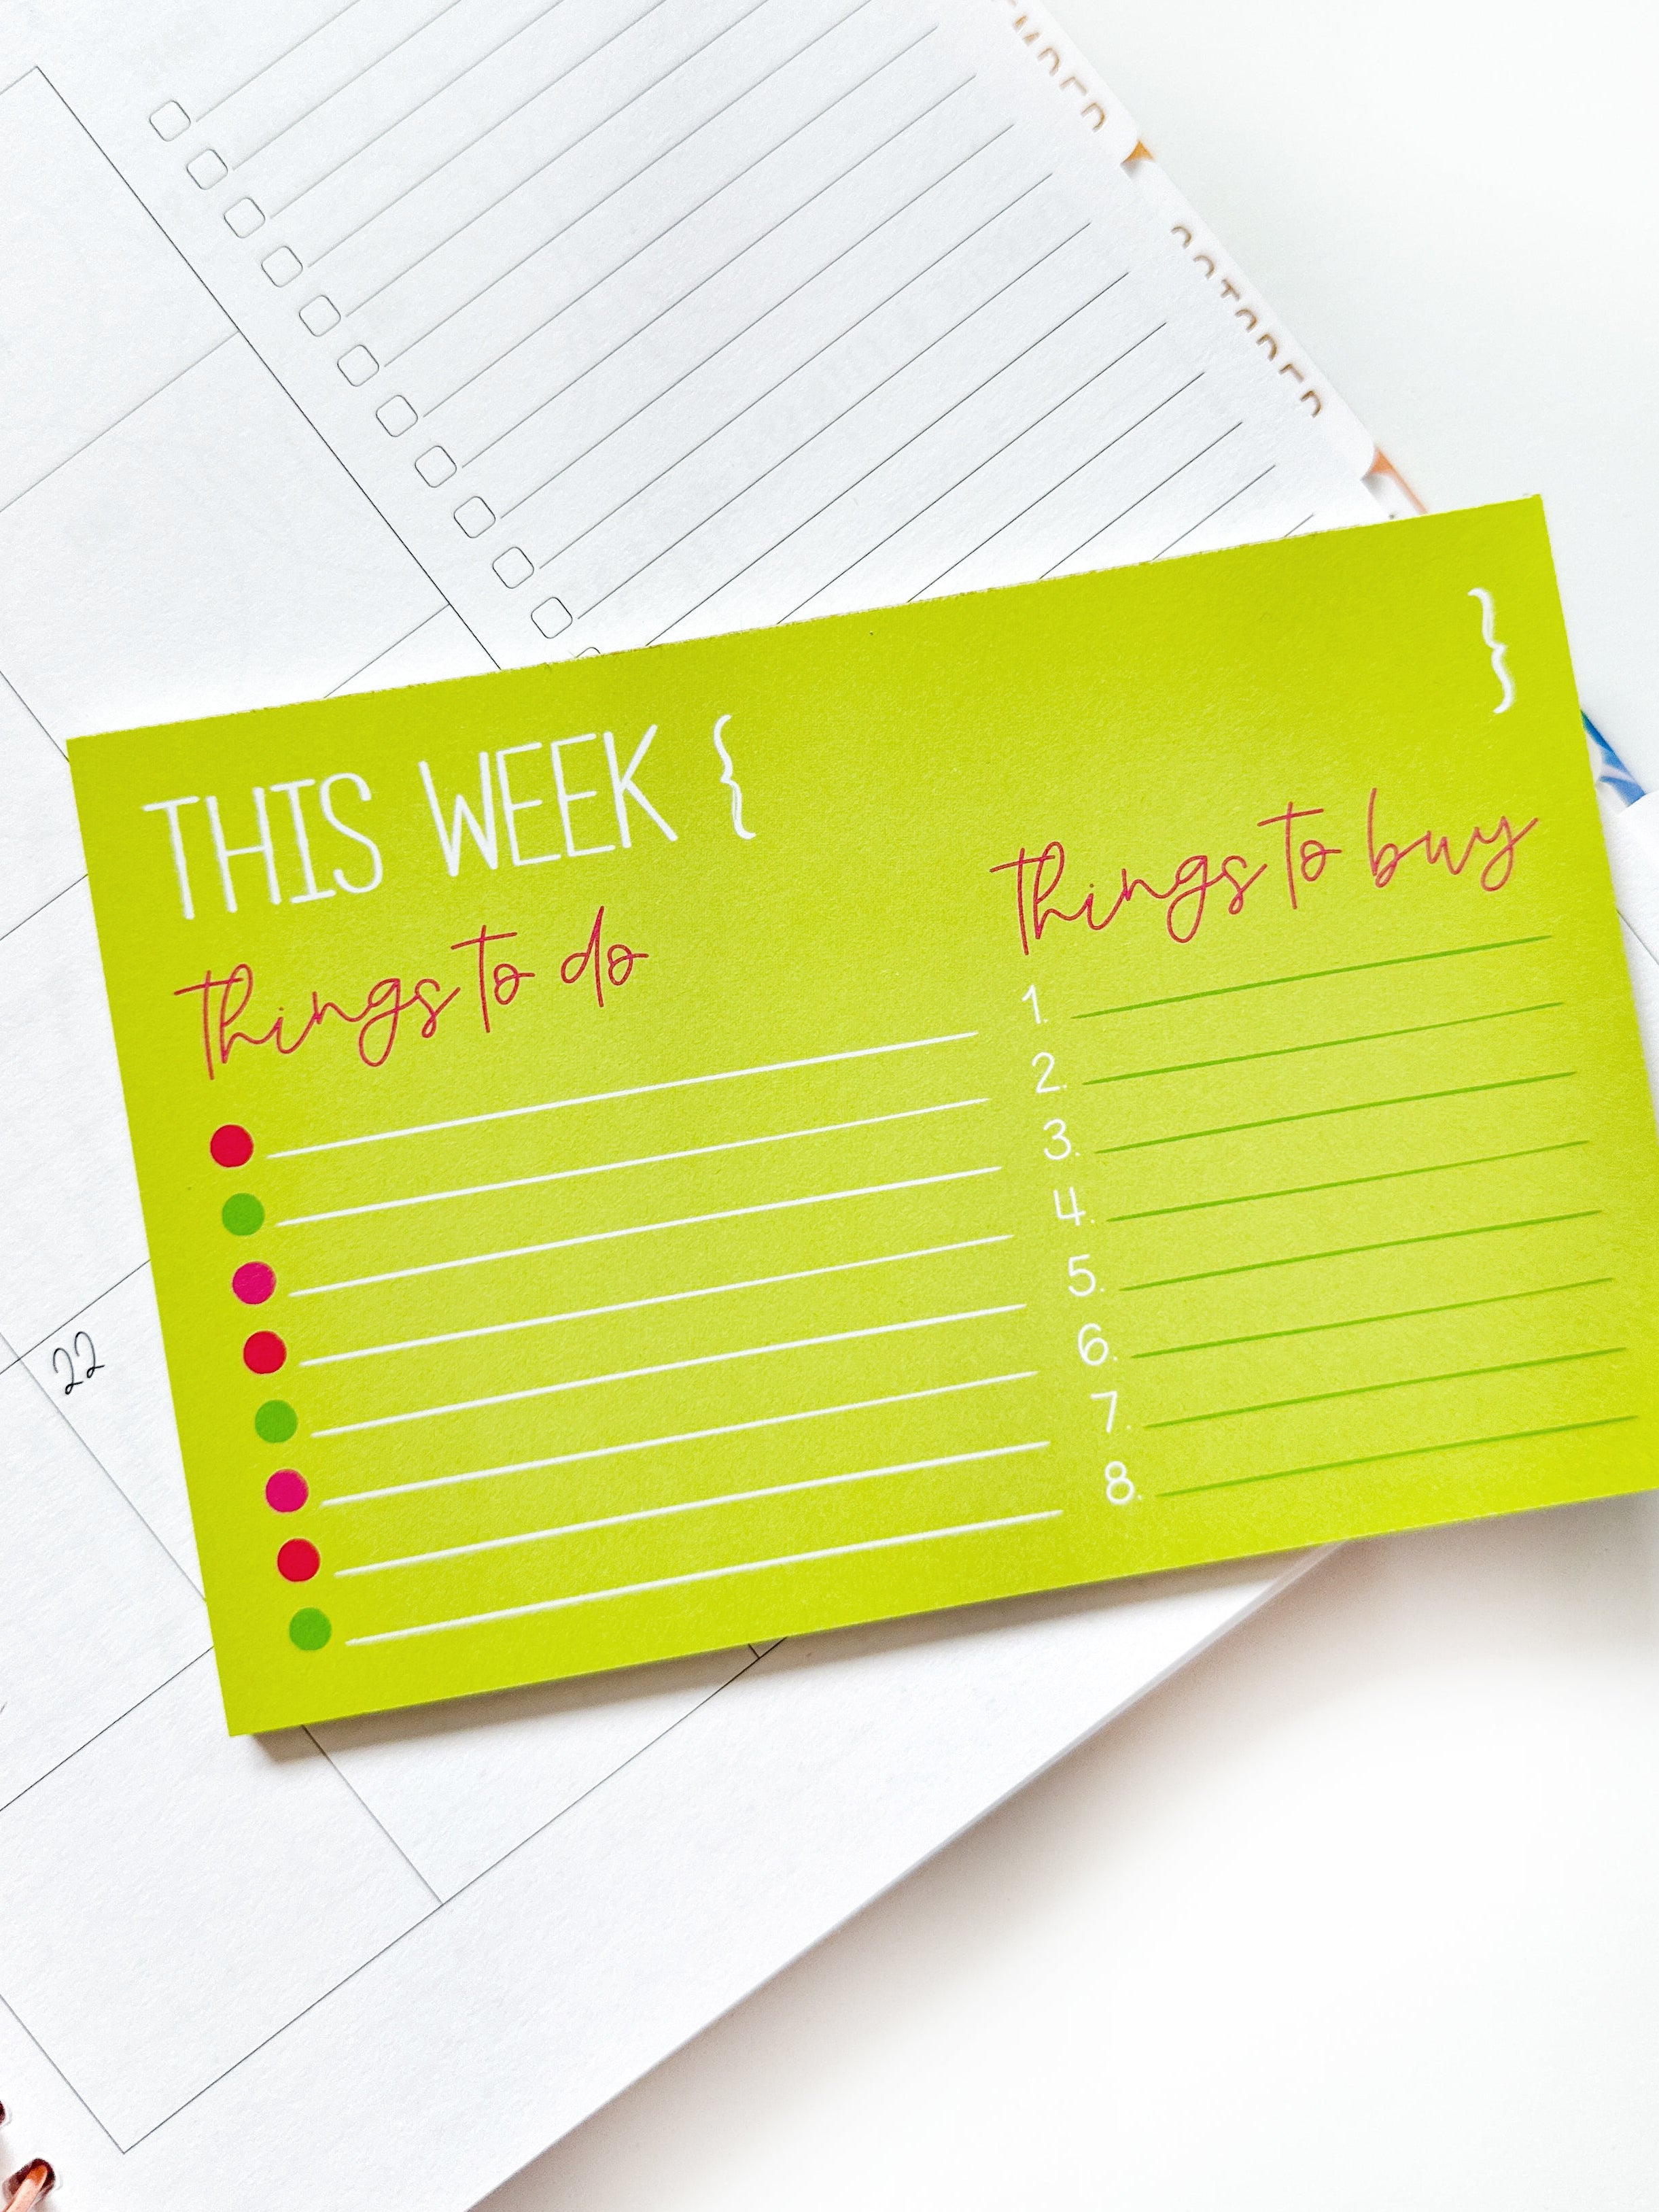 OCTOBER
THIS WEEK { }
things to do
things to buy
1.
2.
3.
4.
5.
6.
7.
8.
22